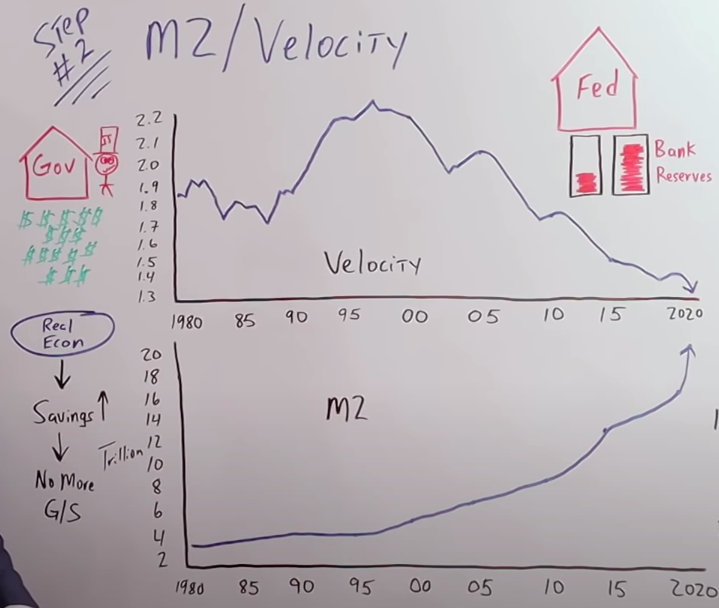 Step
#2
M2/Velocity
Fed
Bank
Reserves
Gov
$ $ $ $ $
$ $ $
$ $ $ $ $
$ $ $
2.2
2.1
2.0
1.9
1.8
1.7
1.6
1.5
1.4
1.3
Velocity
1980 85 90 95 00 05 10 15 2020
Real
Econ
Savings ↑
No More
G/S
Trillion
20
18
16
14
12
10
8
6
4
2
M2
1980 85 90 95 00 05 10 15 2020